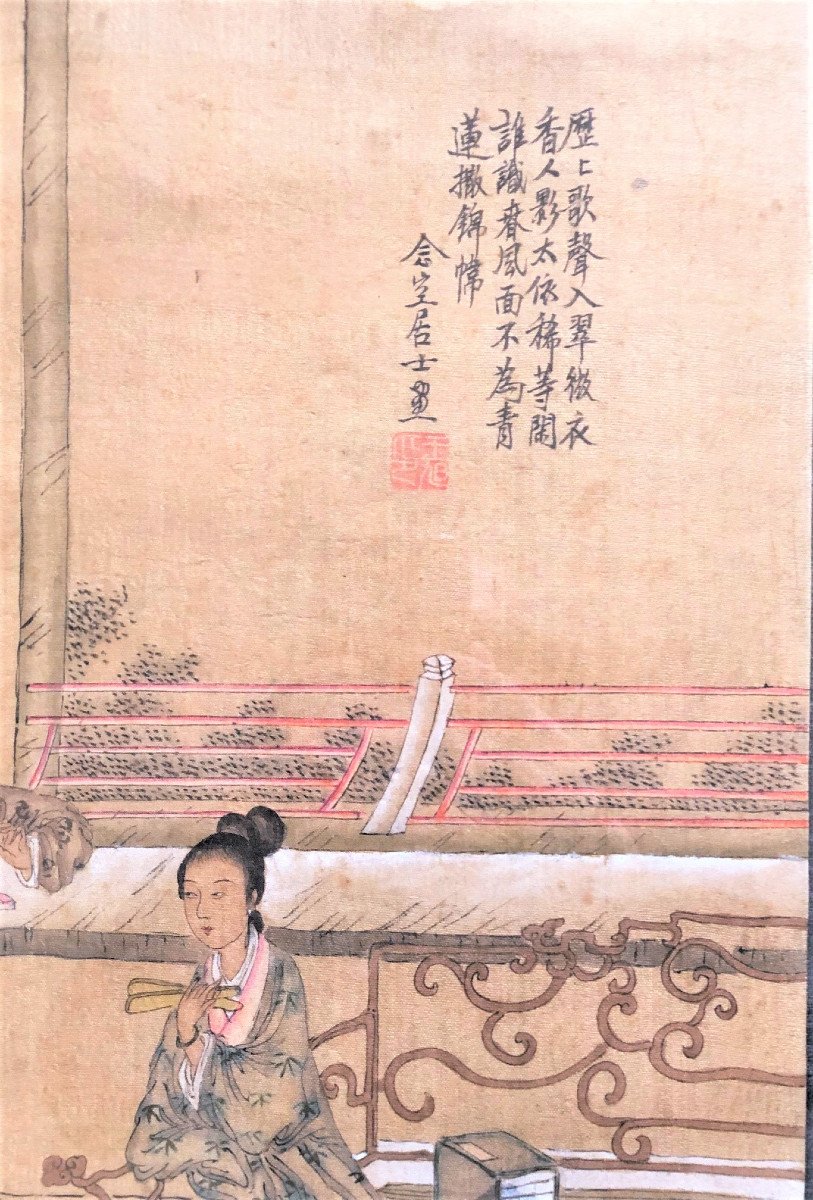 歷上歌聲入翠微衣
香人影太依稀等閑
誰識春風面不為青
蓮撤錦幃
念堂居士畫